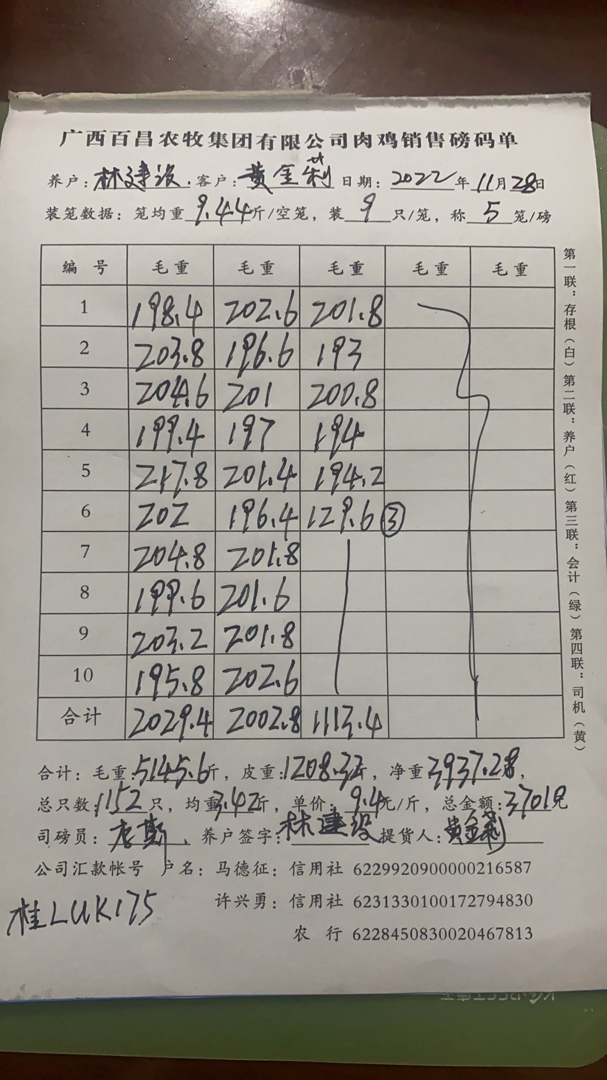 广西百昌农牧集团有限公司肉鸡销售磅码单
养户：林建设．客户：黄金利 日期：2022年11月28日
装笼数据：笼均重9.44斤/空笼，装9只/笼，称5笼/磅
编 号 毛重 毛重 毛重 毛重 毛重
1 198.4 202.6 201.8
2 203.8 196.6 193
3 204.6 201 200.8
4 199.4 197 194
5 217.8 201.4 194.2
6 202 196.4 129.6 ③
7 204.8 201.8
8 199.6 201.6
9 203.2 201.8
10 195.8 202.6
合计 2029.4 2002.8 1113.4
合计：毛重：5145.6斤，皮重：1208.32斤，净重：3937.28，
总只数：1152只，均重3.42斤，单价：9.4元/斤，总金额：37010元
司磅员： 养户签字：林建设 提货人：黄金利
公司汇款帐号 户名：马德征：信用社 6229920900000216587
许兴勇：信用社 6231330100172794830
农 行 6228450830020467813
桂LUK175
第一联：存根（白）第二联：养户（红）第三联：会计（绿）第四联：司机（黄）